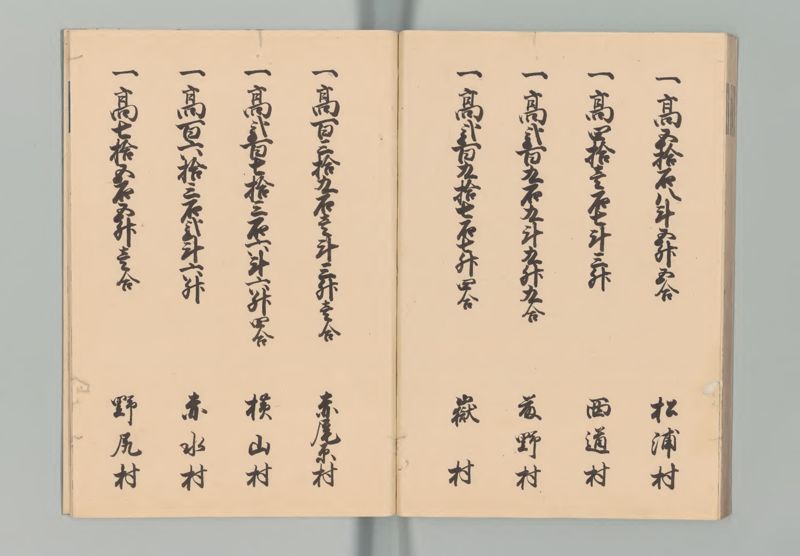 一高五拾石八斗五升五合 松浦村
一高四拾壱石七斗三升 西道村
一高弐百九石九斗九升九合 藤野村
一高弐百九拾七石七升四合 嶽村
一高百三拾九石壱斗三升壱合 赤尾原村
一高弐百七拾三石六斗六升四合 横山村
一高百六拾三石弐斗六升 赤水村
一高七拾五石五升壱合 野尻村